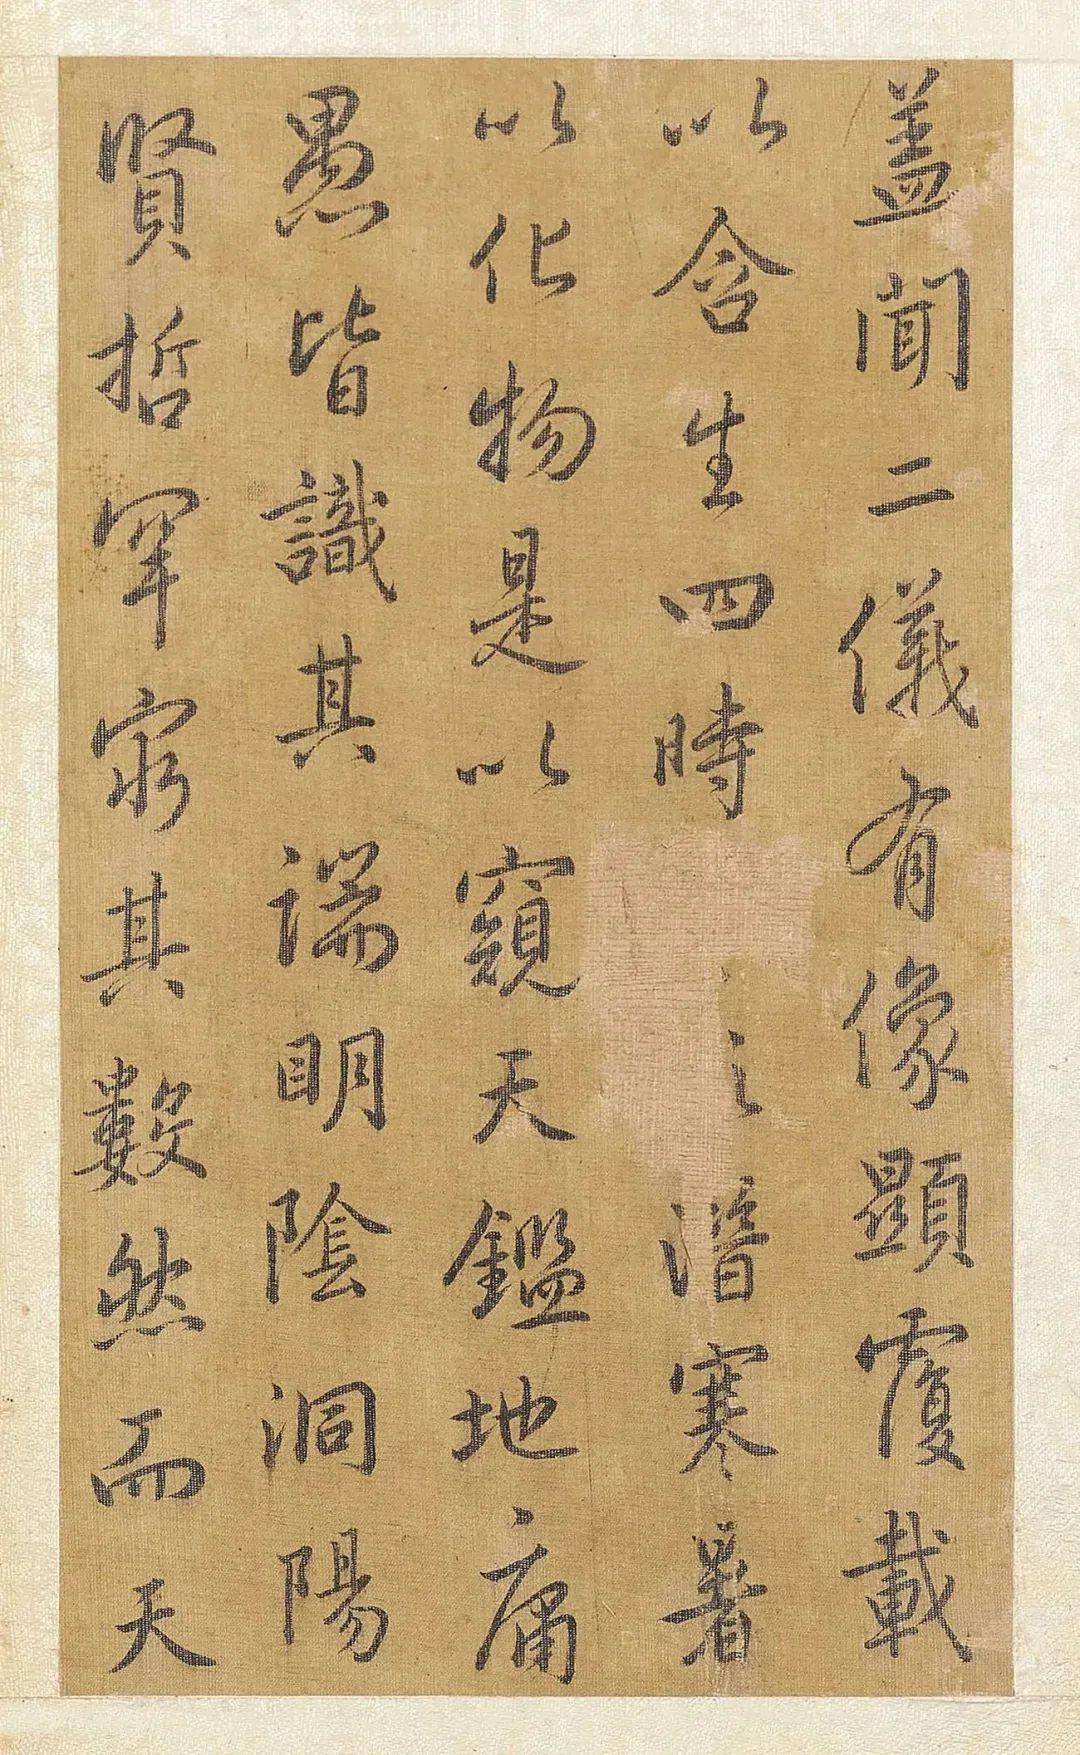 盖聞二儀有像顯覆載
以含生四時潜寒暑
以化物是以窺天鑑地庸
愚皆識其端明陰洞陽
賢哲罕窮其數然而天